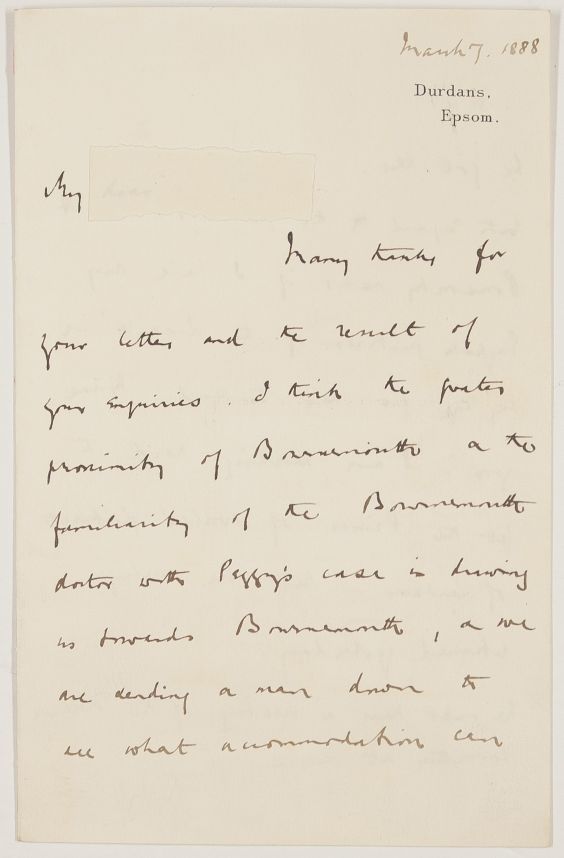 March 7. 1888
Durdans,
Epsom.
My
Many thanks for
your letter and the result of
your enquiries. I think the greater
proximity of Bournemouth & the
familiarity of the Bournemouth
doctor with Peggy's case is drawing
us towards Bournemouth, & we
are sending a man down to
see what accommodation can